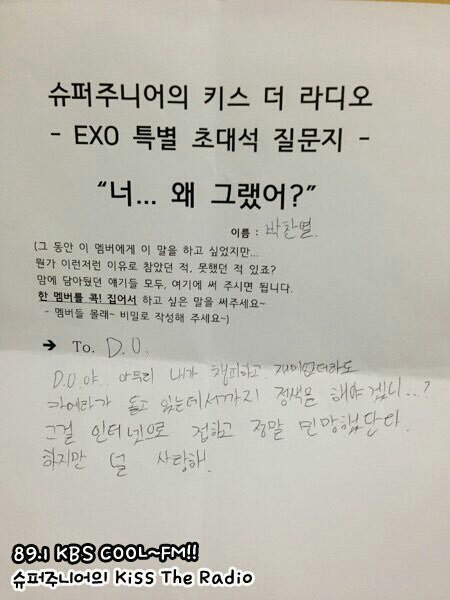 슈퍼주니어의 키스 더 라디오
- EXO 특별 초대석 질문지 -
“너... 왜 그랬어?”
이름 : 박찬열
(그 동안 이 멤버에게 이 말을 하고 싶었지만...
뭔가 이런저런 이유로 참았던 적, 못했던 적 있죠?
맘에 담아뒀던 얘기들 모두, 여기에 써 주시면 됩니다.
한 멤버를 콕! 집어서 하고 싶은 말을 써주세요~
- 멤버들 몰래~ 비밀로 작성해 주세요~)
➔ To. D.O.
D.O.야.. 아무리 내가 챙피하고 재미없더라도
카메라가 돌고 있는데서까지 정색을 해야겠니..?
그걸 인터넷으로 접하고 정말 민망했단다.
하지만 널 사랑해.
89.1 KBS COOL~FM!!
슈퍼주니어의 Kiss The Radio